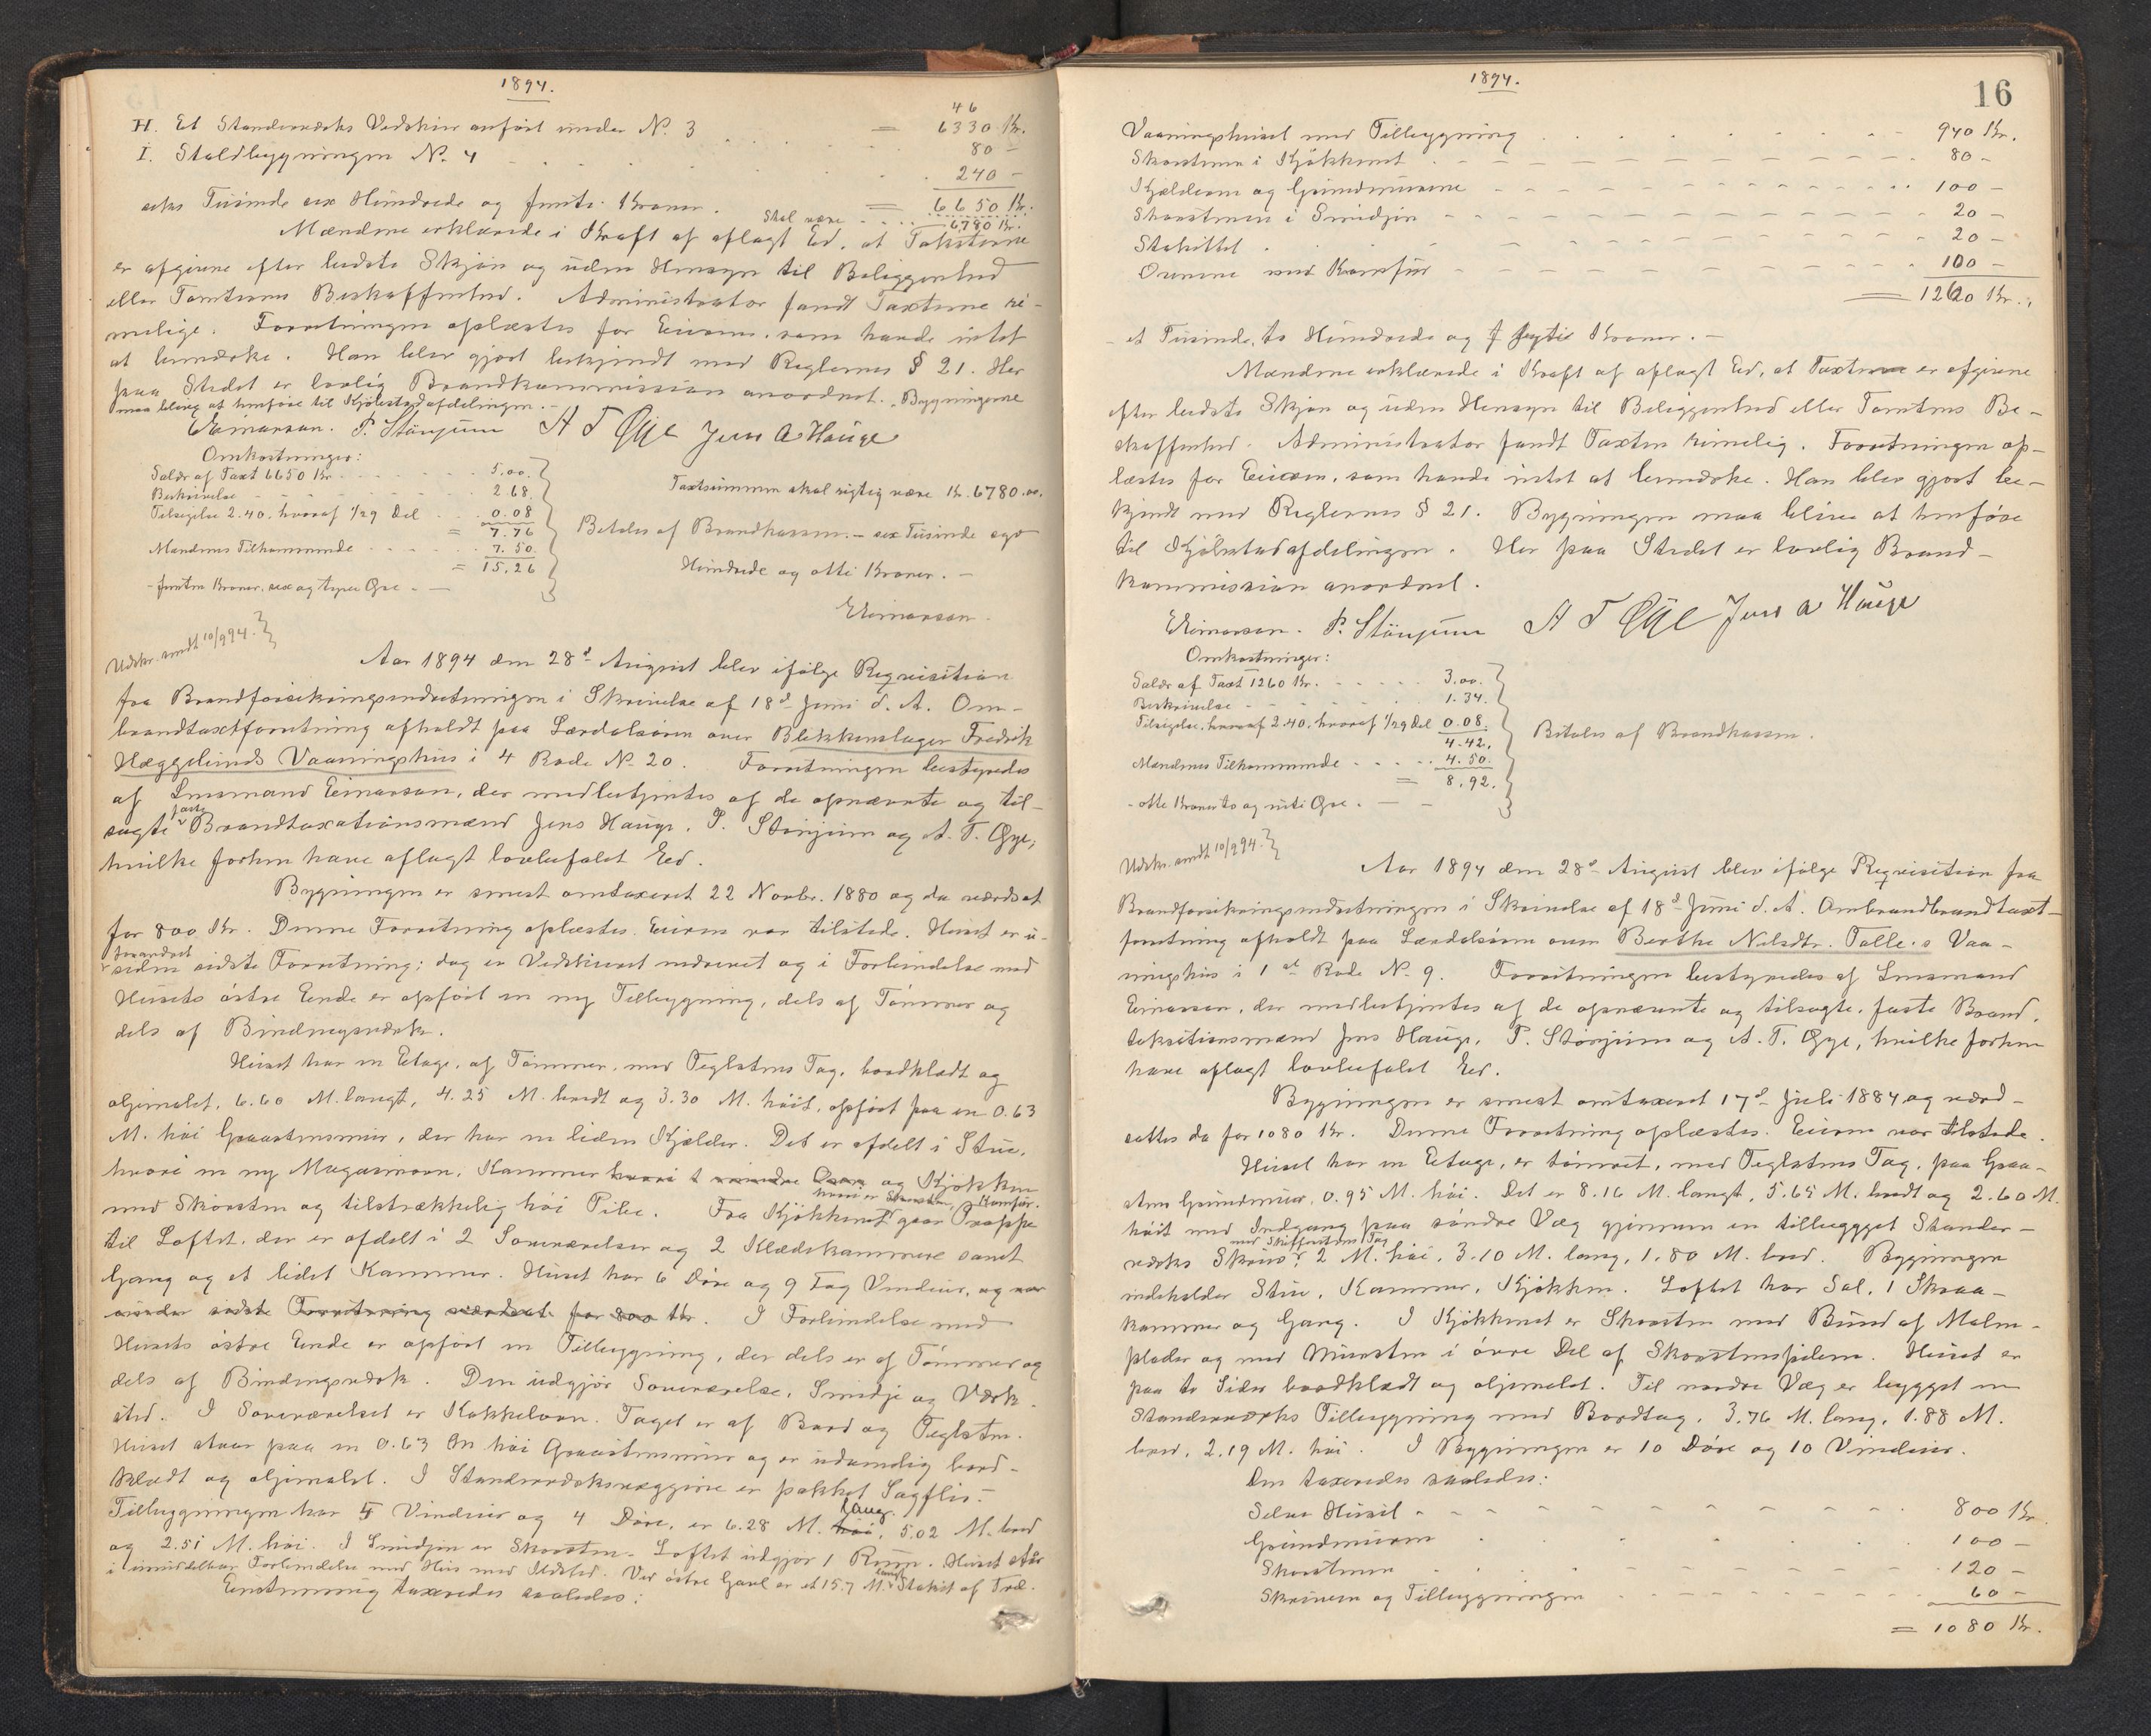 1894.
H. Et Standerværks Vedskjur anført under N. 3 = 6330 Kr.
46
I. Staldbygningen N. 4 80 –
240 –
seks Tusinde sex Hundrede og femti Kroner. = 6650 Kr.
Skal være 6780 Kr.
Mændene erklærede i Kraft af aflagt Ed, at Taksterne
er afgivne efter bedste Skjøn og uden Hensyn til Beliggenhed
eller Tomternes Beskaffenhed. Administrator fandt Taxterne ri-
melige. Forretningen oplæstes for Eieren, som havde intet
at bemærke. Han blev gjort bekjendt med Reglernes § 21. Her
paa Stedet er lovlig Brandkommission anordnet. Bygningerne
maa blive at henføre til Kjøbstadafdelingen. –
Eeinarsen. P. Stönjum A T Øije Jens A Hauge
Omkostninger:
Salær af Taxt 6650 Kr. 5.00.
Beskrivelse 2.68.
Tilsigelse 2.40, hvoraf 1/29 Del 0.08
= 7.76
Mændenes Tilkommende 7.50.
= 15.26
– femten Kroner, sex og tyve Øre. –
Taxtsummen skal rigtig være Kr. 6780.00.
Betales af Brandkassen. – sex Tusinde syv
Hundrede og otti Kroner. –
Eeinarsen.
Udskr. sendt 10/9 94.
Aar 1894 den 28d August blev ifølge Reqvisition
fra Brandforsikringsindretningen i Skrivelse af 18d Juni d. A. Om-
brandtaxtforretning afholdt paa Lærdalsøren over Blikkenslager Fredrik
Hæggelunds Vaaningshus i 4 Rode No 20. Forretningen bestyredes
af Lensmand Einarsen, der medbetjentes af de opnævnte og til-
sagte faste Brandtaxationsmænd Jens Hauge, P. Stönjum og A. T. Øye,
hvilke forhen have aflagt lovbefalet Ed.
Bygningen er senest omtaxeret 22 Novbr. 1880 og da værdsat
for 800 Kr. Denne Forretning oplæstes. Eieren var tilstede. Huset er u-
forandret siden sidste Forretning; dog er Vedskjuret nedrevet og i Forbindelse med
Husets østre Ende er opført en ny Tilbygning, dels af Tømmer og
dels af Bindingsværk.
Huset har en Etage, af Tømmer, med Teglstens Tag, bordklædt og
oljemalet, 6.60 M. langt, 4.25 M. bredt og 3.30 M. höit, opført paa en 0.63
M. höi Graastensmur, der har en liden Kjælder. Det er afdelt i Stue,
hvori en ny Magasinovn, Kammer hvori 1 mindre Ovn og Kjøkken
hvori er Skorsten, Komfür.
med Skorsten og tilstrækkelig höi Pibe. Fra Kjøkkenet gaar Trappe
til Loftet, der er afdelt i 2 Soveværelser og 2 Klædeskammere samt
Gang og et lidet Kammer. Huset har 6 Døre og 9 Fag Vinduer, og var
under sidste Forretning værdsat for 800 Kr. I Forbindelse med
Husets østre Ende er opført en Tilbygning, der dels er af Tømmer og
dels af Bindingsværk. Den udgjør Soveværelse, Smidje og Værk-
sted. I Soveværelset er Kakkelovn. Taget er af Bord og Teglsten.
Huset staar paa en 0.63 M. höi Graastensmur og er udvendig bord-
klædt og oljemalet. I Standerværksvæggene er pakket Sagflis.
Tilbygningen har 5 Vinduer og 4 Døre, er 6.28 M. höi lang, 5.02 M. bred
og 2.51 M. höi. I Smidjen er Skorsten. Loftet udgjør 1 Rum. Huset står
i umiddelbar Forbindelse med Hus med Ildsted. Ved østre Gavl er et 15.7 M. langt Stakit af Træ.
Enstemmig taxeredes saaledes:
1894.
16
Vaaningshuset med Tilbygning 940 Kr.
Skorstenen i Kjøkkenet 80 –
Kjælderen og Grundmurene 100 –
Skorstenen i Smidjen 20 –
Stakittet 20 –
Ovnene med Komfür 100 –
= 1260 Kr.,
– et Tusinde, to Hundrede og sexti Kroner. –
Mændene erklærede i Kraft af aflagt Ed, at Taxten er afgivne
efter bedste Skjøn og uden Hensyn til Beliggenhed eller Tomtens Be-
skaffenhed. Administrator fandt Taxten rimelig. Forretningen op-
læstes for Eieren, som havde intet at bemærke. Han blev gjort be-
kjendt med Reglernes § 21. Bygningen maa blive at henføre
til Kjøbstadafdelingen. Her paa Stedet er lovlig Brand-
kommission anordnet.
Eeinarsen. P. Stönjum A T Øije Jens A Hauge
Omkostninger:
Salær af Taxt 1260 Kr. 3.00.
Beskrivelse 1.34.
Tilsigelse, hvoraf 2.40, hvoraf 1/29 Del 0.08.
4.42.
Mændenes Tilkommende 4.50.
= 8.92.
– otte Kroner to og niti Øre. –
Betales af Brandkassen.
Udskr. sendt 10/9 94.
Aar 1894 den 28d August blev ifølge Reqvisition fra
Brandforsikringsindretningen i Skrivelse af 18d Juni d. A. Ombrandbrandtaxt-
forretning afholdt paa Lærdalsøren over Berthe Nelsdtr. Talle's Vaa-
ningshus i 1st Rode No 9. Forretningen bestyredes af Lensmand
Einarsen, der medbetjentes af de opnævnte og tilsagte, faste Brand-
taksationsmænd Jens Hauge, P. Stönjum og A. T. Øye, hvilke forhen
have aflagt lovbefalet Ed.
Bygningen er senest omtaxeret 17d Juli 1884 og værd-
sattes da for 1080 Kr. Denne Forretning oplæstes. Eieren var tilstede.
Huset har en Etage, er tömret, med Teglstens Tag, paa Graa-
stens Grundmur, 0.95 M. höi. Det er 8.16 M. langt, 5.65 M. bredt og 2.60 M.
höit med Indgang paa söndre Væg gjennem en tilbygget Stander-
værks Skruv med Skifferstens Tag, 2 M. höi, 3.10 M. lang, 1.80 M. bred. Bygningen
indeholder Stue, Kammer, Kjøkken. Loftet har Sal, 1 Skraa-
kammer og Gang. I Kjøkkenet er Skorsten med Bund af Malm-
plader og med Mursten i øvre Del af Skorstenspiben. Huset er
paa to Sider bordklædt og oljemalet. Til nordre Væg er bygget en
Standerværks Tilbygning med Bordtag, 3.76 M. lang, 1.88 M.
bred, 2.19 M. höi. I Bygningen er 10 Døre og 10 Vinduer.
Den taxeredes saaledes:
Selve Huset 800 Kr.
Grundmuren 100 –
Skorstenen 120 –
Skruven og Tilbygningen 60 –
= 1080 Kr.